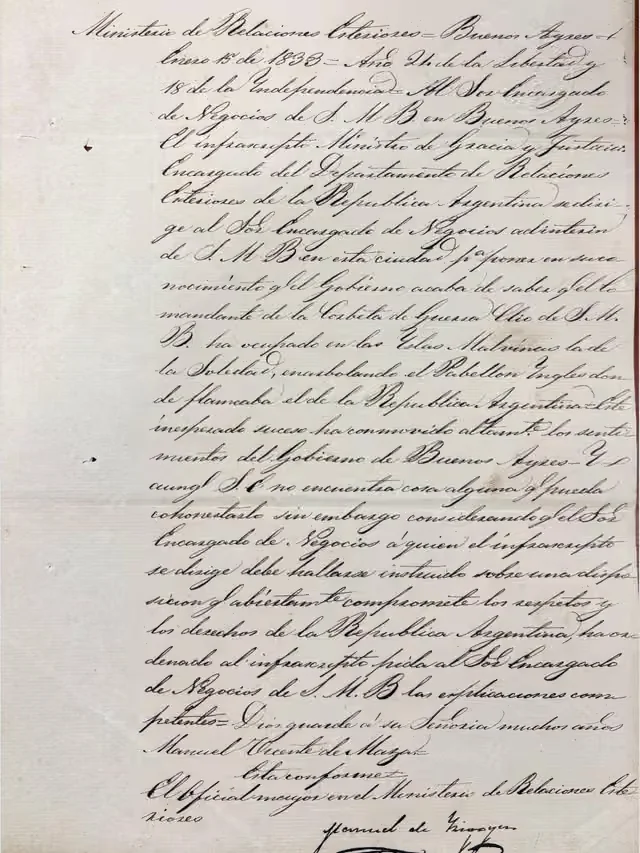 Ministerio de Relaciones Esteriores = Buenos Ayres =
Enero 15 de 1833 = Año 24 de la Libertad y
18 de la Independencia = Al Sor Encargado
de Negocios de S. M. B en Buenos Ayres =
El infrascripto Ministro de Gracia y Justicia
Encargado del Departamento de Relaciones
Esteriores de la Republica Argentina se diri-
ge al Sor Encargado de Negocios ad interin
de S. M. B en esta ciudad pa poner en su co
nocimiento q. el Gobierno acaba de saber q. el Co
mandante de la Corbeta de Guerra Clio de S. M.
B. ha ocupado en las Yslas Malvinas la de
la Soledad, enarbolando el Pabellon Ingles don
de flameaba el de la Republica Argentina = Este
inesperado suceso ha conmovido altamte los senti
mientos del Gobierno de Buenos Ayres - Y
aunq. S. E. no encuentra cosa alguna q. pueda
cohonestarlo sin embargo considerando q. el Sor
Encargado de Negocios á quien el infrascripto
se dirige debe hallarse instruido sobre una dispo
sicion q. abiertamte compromete los respetos y
los derechos de la Republica Argentina, ha or
denado al infrascripto pida al Sor Encargado
de Negocios de S. M. B las esplicaciones com
petentes = Dios guarde á su Señoria muchos años
Manuel Vicente de Maza =
Esta conforme =
El Oficial mayor en el Ministerio de Relaciones Este
riores
Manuel de Irigoyen